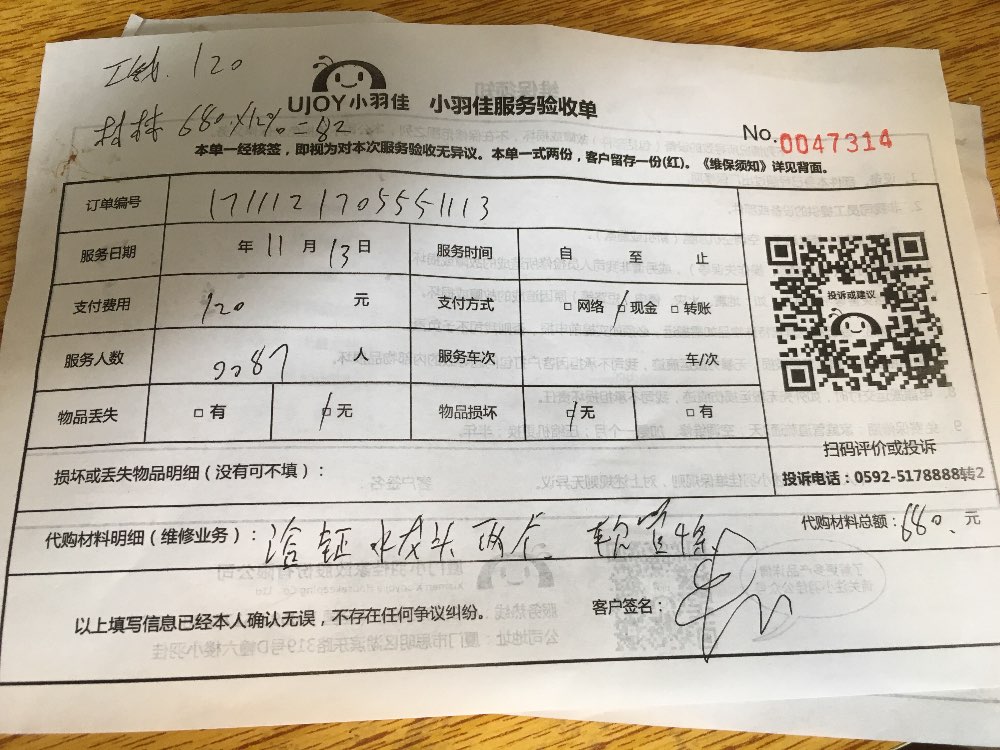 工钱. 120
材料 680×12%=82
UJOY小羽佳 小羽佳服务验收单
No.0047314
本单一经核签，即视为对本次服务验收无异议。本单一式两份，客户留存一份(红)。《维保须知》详见背面。
订单编号 1711121705551113
服务日期 年 11 月 13 日 服务时间 自 至 止
支付费用 120 元 支付方式 □ 网络 □ 现金 □ 转账
投诉或建议
服务人数 2287 服务车次 车/次
物品丢失 □ 有 □ 无 物品损坏 □ 无 □ 有
扫码评价或投诉
投诉电话：0592-5178888转2
损坏或丢失物品明细（没有可不填）：
代购材料明细（维修业务）： 洽钲水龙头两个、软管4条 代购材料总额：680. 元
以上填写信息已经本人确认无误，不存在任何争议纠纷。 客户签名：